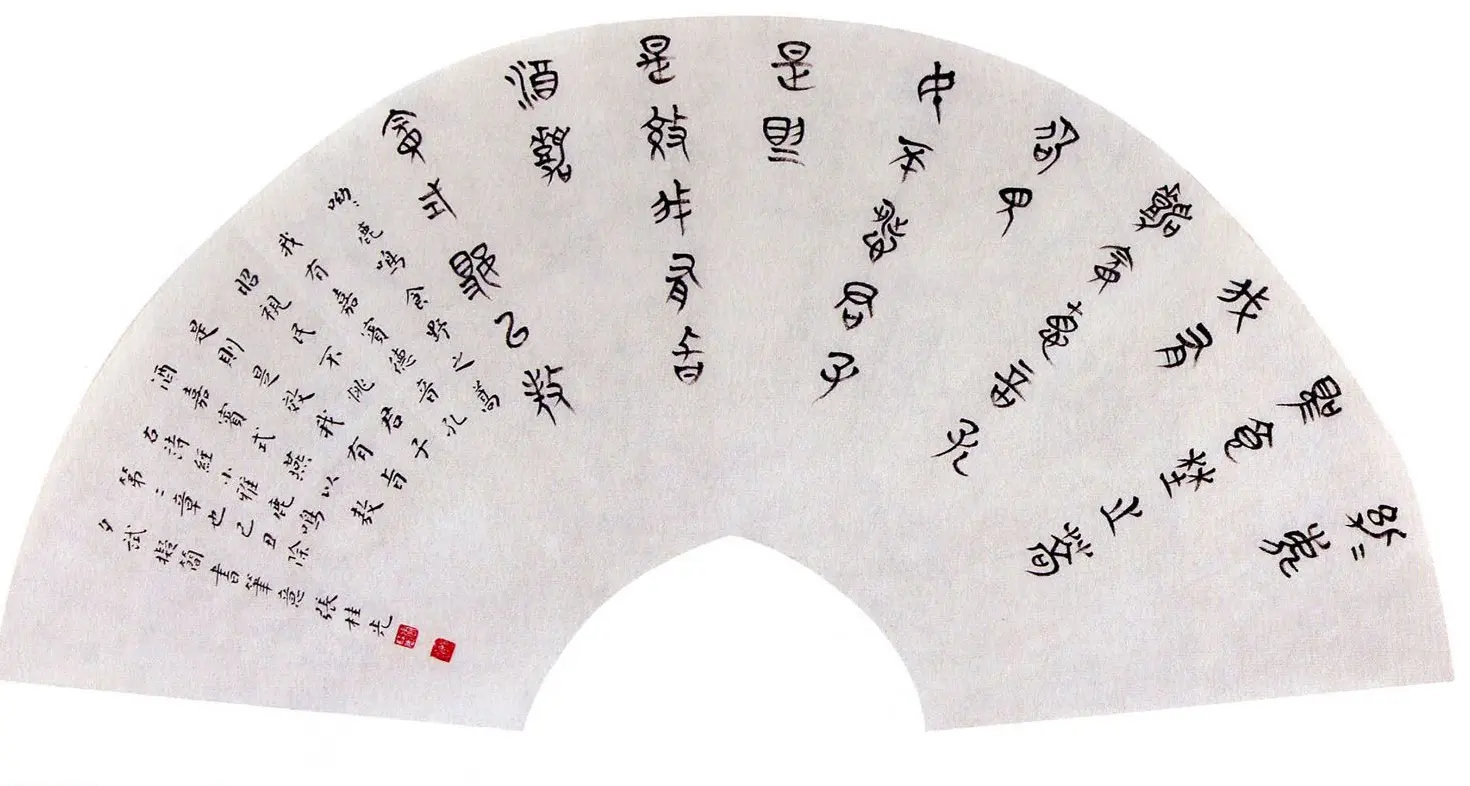 呦=鹿
鳴食野之蒿
我有
嘉賓德音孔
昭視
民不恌君子
是則
是效我有旨
酒嘉
賓式燕以敖
呦=鹿鳴食野之蒿
我有嘉賓德音孔
昭視民不恌君子
是則是效我有旨
酒嘉賓式燕以敖
右詩經小雅鹿鳴
第二章也己丑除
夕試擬簡書筆意張桂光